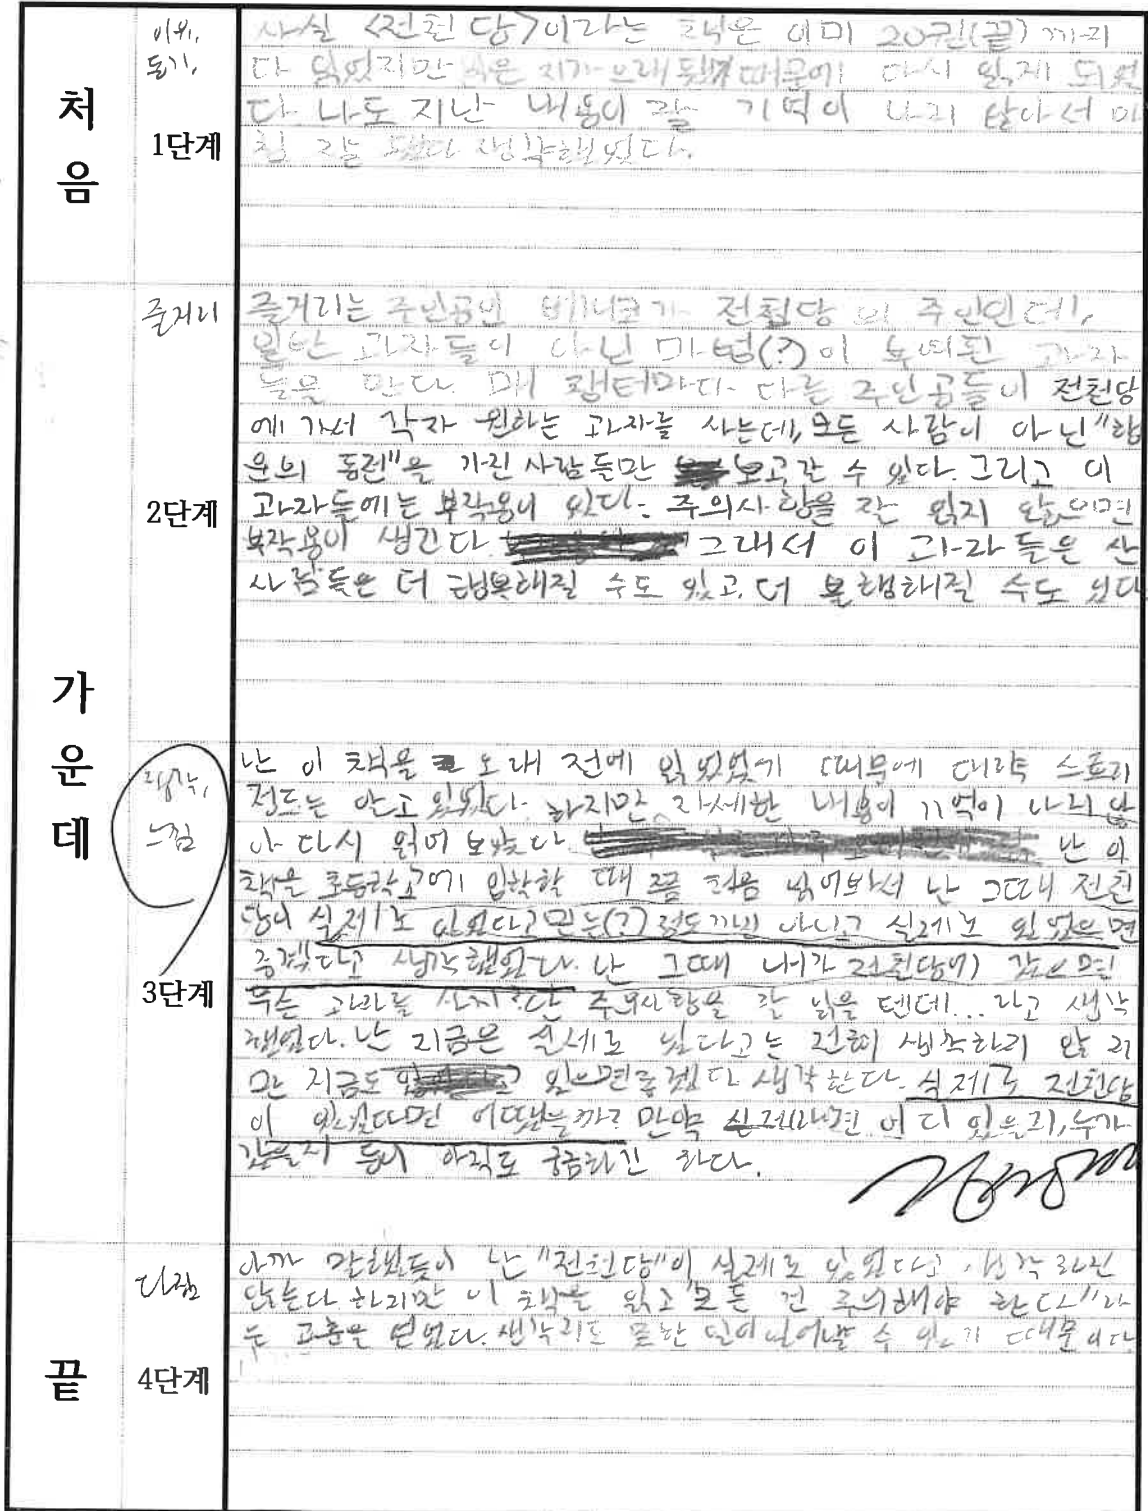 처음
이유,
동기,
1단계
사실 <전천당>이라는 책은 이미 20권(끝)까지
다 읽었지만 읽은 지가 오래 됐기 때문에 다시 읽게 되었
다 나도 지난 내용이 잘 기억이 나지 않아서 마
침 잘 됐다 생각했었다.
가운데
줄거리
2단계
줄거리는 주인공인 베니코가 전천당의 주인인데,
일반 과자들이 아닌 마법(?)이 부여된 과자
들을 판다. 매 챕터마다 다른 주인공들이 전천당
에 가서 각자 원하는 과자를 사는데, 모든 사람이 아닌 "행
운의 동전"을 가진 사람들만 보고 갈 수 있다. 그리고 이
과자들에는 부작용이 있다. 주의사항을 잘 읽지 않으면
부작용이 생긴다. 그래서 이 과자들은 산
사람들은 더 행복해질 수도 있고, 더 불행해질 수도 있다
생각,
느낌
3단계
난 이 책을 오래 전에 읽었었기 때무에 대략 스토리
정도는 알고 있었다. 하지만 자세한 내용이 기억이 나지 않
아 다시 읽어 보았다. 난 이
책을 초등학교에 입학할 때 쯤 처음 읽어봐서 난 그때 전천
당이 실제로 있었다고 믿는(?) 정도까진 아니고 실제로 있었으면
좋겠다고 생각했었다. 난 그때 내가 전천당에 갔으면
무슨 과자를 사지? 난 주의사항을 잘 읽을 텐데... 라고 생각
했었다. 난 지금은 실제로 있다고는 전혀 생각하지 않지
만 지금도 있으면 좋겠다 생각한다. 실제로 전천당
이 있었다면 어땠을까? 만약 실제라면 어디 있을지, 누가
갔을지 등이 아직도 궁금하긴 하다.
끝
다짐
4단계
아까 말했듯이 난 "전천당"이 실제로 있었다고 생각하진
않는다. 하지만 이 책을 읽고 "모든 건 주의해야 한다"라
는 교훈을 얻었다. 생각치도 못한 일이 일어날 수 있기 때문이다.